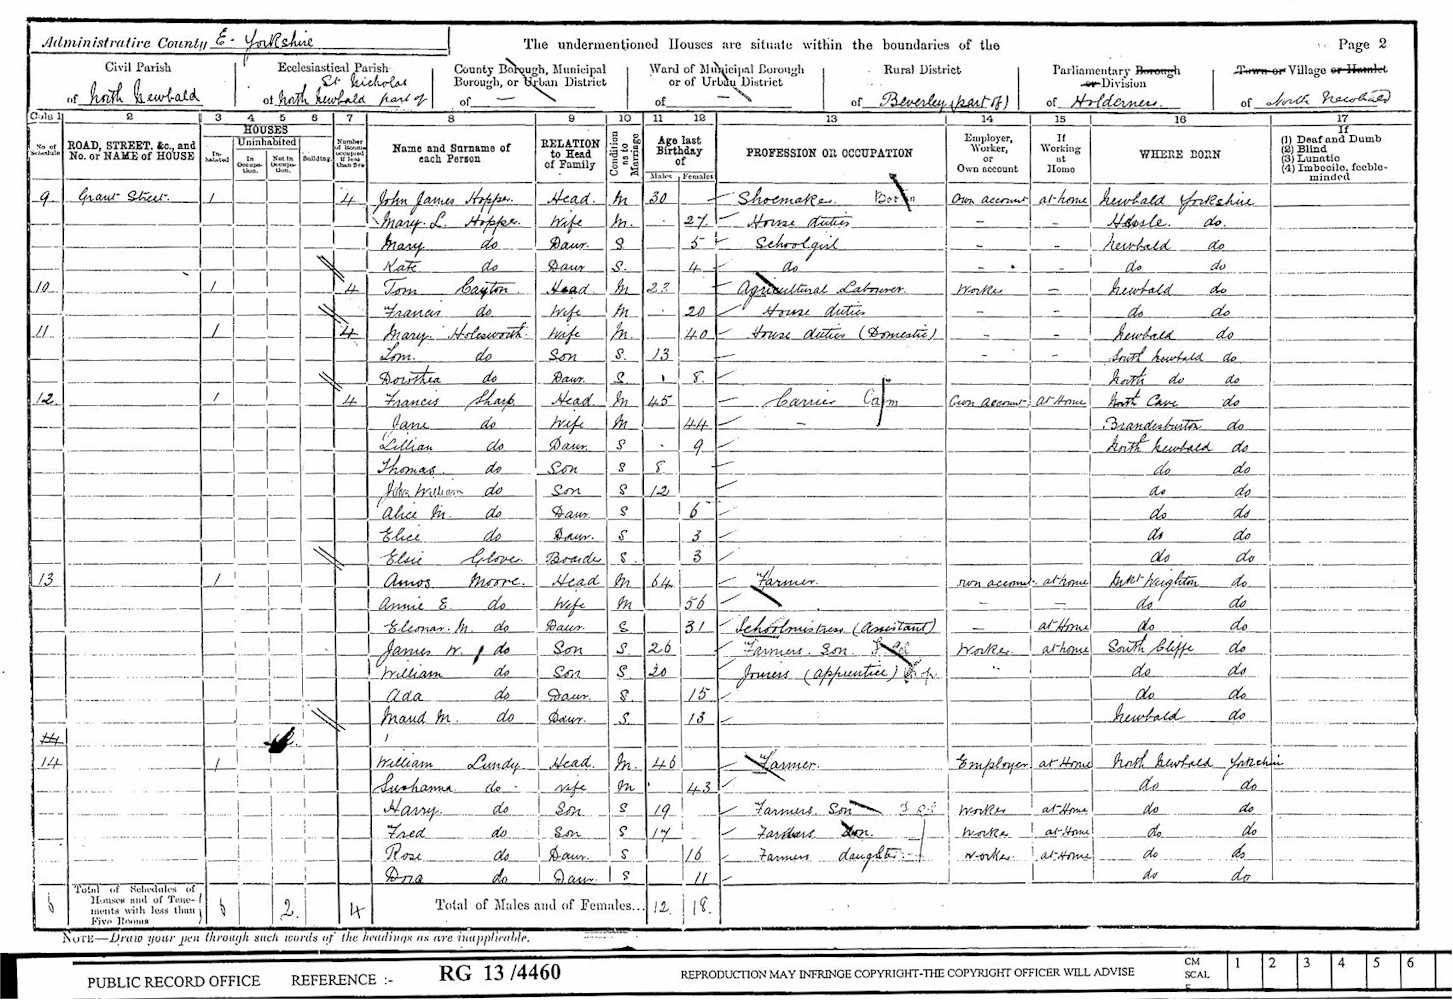 Administrative County E. Yorkshire The undermentioned Houses are situate within the boundaries of the Page 2
Civil Parish Ecclesiastical Parish County Borough, Municipal Ward of Municipal Borough Rural District Parliamentary Borough Town or Village or Hamlet
St Nicholas Borough, or Urban District or of Urban District or Division
of North Newbald of North Newbald part of of — of — of Beverley (part of) of Holderness of North Newbald
Cols 1 2 3 4 5 6 7 8 9 10 11 12 13 14 15 16 17
No. of Schedule ROAD, STREET, &c., and No. or NAME of HOUSE HOUSES Inhabited Uninhabited In Occupation. Not in Occupation. Building. Number of Rooms occupied if less than five Name and Surname of each Person RELATION to Head of Family Condition as to Marriage Age last Birthday of Males Females PROFESSION OR OCCUPATION Employer, Worker, or Own account If Working at Home WHERE BORN If (1) Deaf and Dumb (2) Blind (3) Lunatic (4) Imbecile, feeble-minded
9 Grant Street 1 4 John James Hopper Head M 30 Shoemaker Own account at home Newbald Yorkshire
Mary L. Hopper Wife M. 27 House duties — — Hessle do.
Mary do Daur. S 5 Schoolgirl — — Newbald do
Kate do Daur S. 4 do — — do do
10 1 4 Tom Cayton Head M 23 Agricultural Labourer Worker — Newbald do
Francis do Wife M 20 House duties — — do do
11 1 4 Mary Holesworth Wife M. 40 House duties (Domestic) — — Newbald do
Tom do Son S. 13 — — South Newbald do
Dorothea do Daur. S 8. North do do
12 1 4 Francis Sharp Head M 45 Carrier Own account at Home North Cave do
Jane do Wife M 44 — Brandesburton do
Lillian do Daur. S 9 North Newbald do
Thomas do Son S 8 do do
John William do Son S 12 do do
Alice M. do Daur. S 6 do do
Elice do Daur. S 3 do do
Elsie Glover Boarder S 3 do do
13 1 Amos Moore. Head M. 64 Farmer. own account at home Mkt Weighton do
Annie E. do Wife M 56 — — do do
Eleonar. M. do Daur. S 31 Schoolmistress (Assistant) — at Home do do
James W. do Son S. 26 Farmers. Son Worker. at home South Cliffe do
William do Son S. 20 Joiners (apprentice) " do do
Ada do Daur. S. 15 do do
Maud M. do Daur. S. 13 Newbald do
14
14 1 William Lundy. Head. M. 46 Farmer. Employer at Home North Newbald Yorkshire
Sushanna do wife M 43 do do
Harry. do Son S 19 Farmers. Son Worker at Home do do
Fred do Son S 17 Farmers Son. Worker at Home do do
Rose do Daur. S 16 Farmers daughter Worker. at Home do do
Dora do Daur. S 11 do do
6 Total of Schedules of Houses and of Tenements with less than Five Rooms 6 2. 4 Total of Males and of Females... 12 18.
NOTE—Draw your pen through such words of the headings as are inapplicable.
PUBLIC RECORD OFFICE REFERENCE :- RG 13 /4460 REPRODUCTION MAY INFRINGE COPYRIGHT-THE COPYRIGHT OFFICER WILL ADVISE CM SCALE 1 2 3 4 5 6